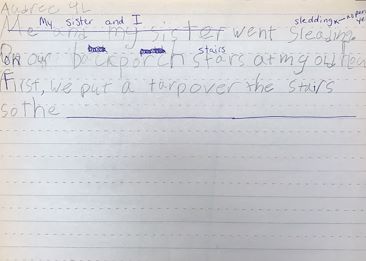 My sister and I
sledding
Me and my sister went
our backporch stars at my old
stairs
First, we put a tarp over the stairs
so the